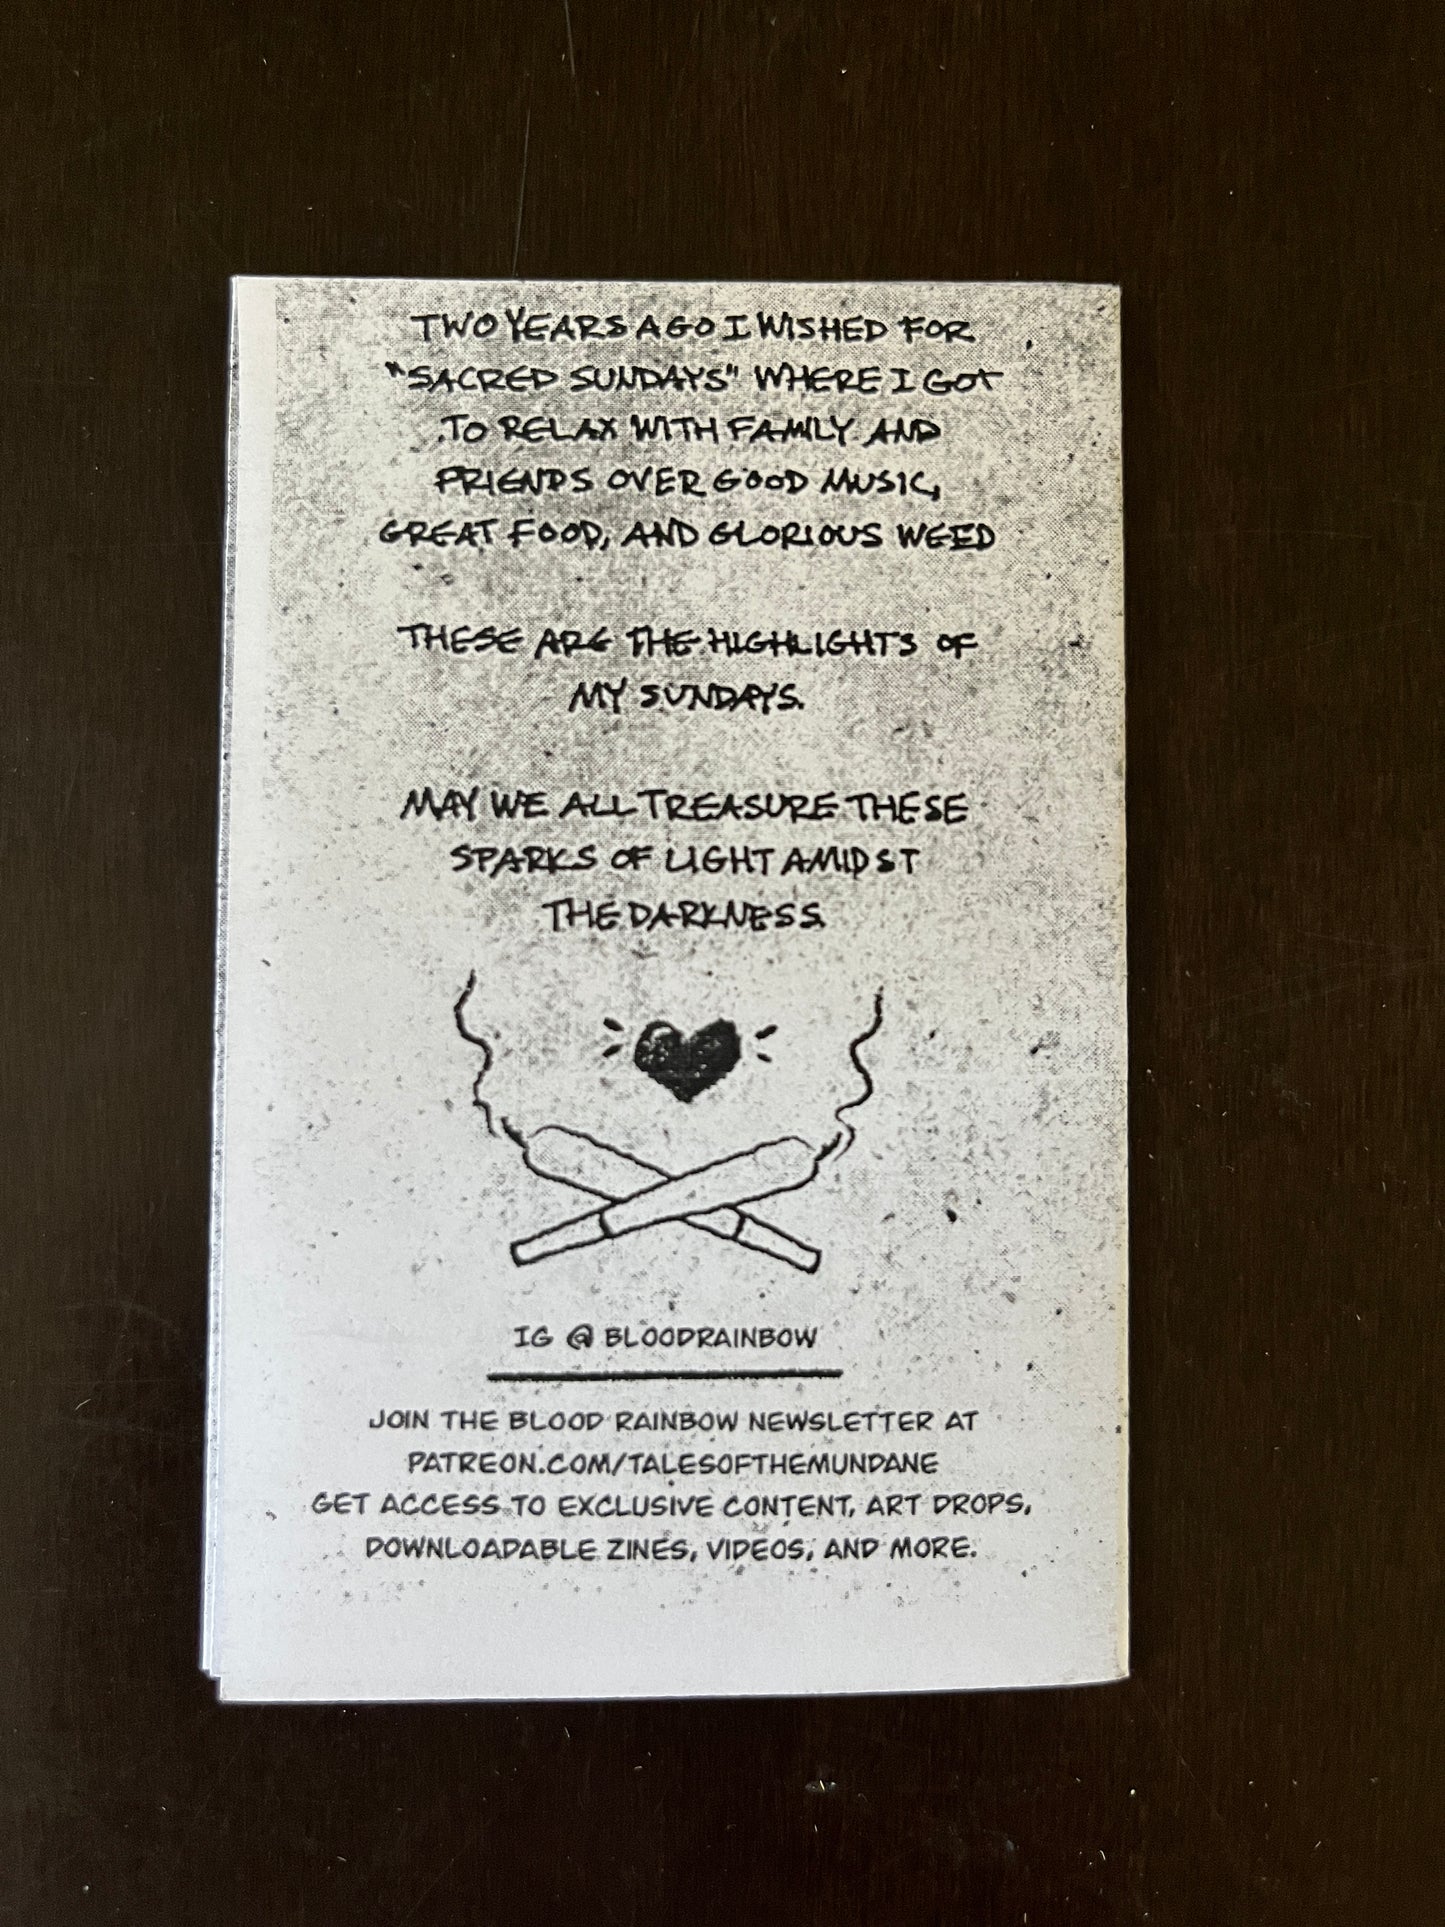 TWO YEARS AGO I WISHED FOR
"SACRED SUNDAYS" WHERE I GOT
TO RELAX WITH FAMILY AND
FRIENDS OVER GOOD MUSIC,
GREAT FOOD, AND GLORIOUS WEED
THESE ARE THE HIGHLIGHTS OF
MY SUNDAYS.
MAY WE ALL TREASURE THESE
SPARKS OF LIGHT AMIDST
THE DARKNESS.
IG @ BLOODRAINBOW
JOIN THE BLOOD RAINBOW NEWSLETTER AT
PATREON.COM/TALESOFTHEMUNDANE
GET ACCESS TO EXCLUSIVE CONTENT, ART DROPS,
DOWNLOADABLE ZINES, VIDEOS, AND MORE.